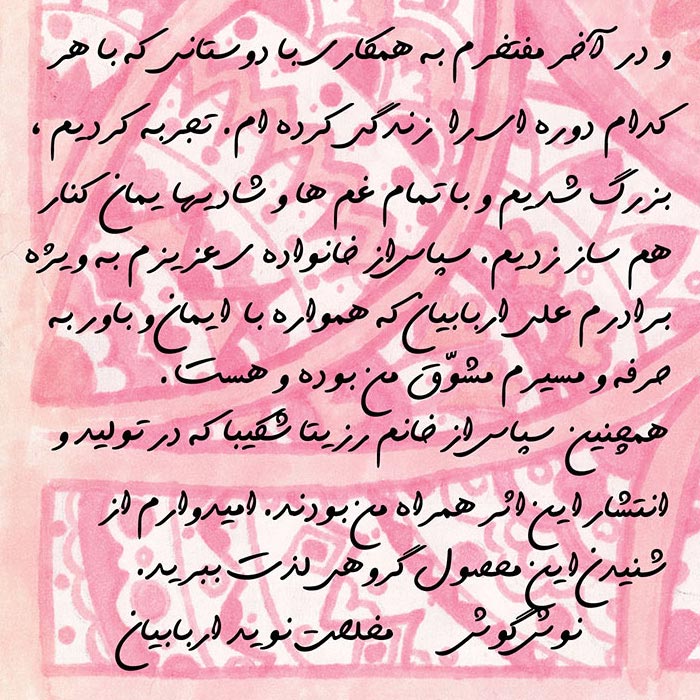 و در آخر مفتخرم به همکاری با دوستانی که با هر
کدام دوره ای را زندگی کرده ام. تجربه کردیم ،
بزرگ شدیم و با تمام غم ها و شادیهایمان کنار
هم ساز زدیم. سپاس از خانواده ی عزیزم به ویژه
برادرم علی اربابیان که همواره با ایمان و باور به
حرفه و مسیرم مشوّق من بوده و هست.
همچنین سپاس از خانم رزیتا شکیبا که در تولید و
انتشار این اثر همراه من بودند. امیدوارم از
شنیدن این محصول گروهی لذت ببرید.
نوش گوش مخلصت نوید اربابیان